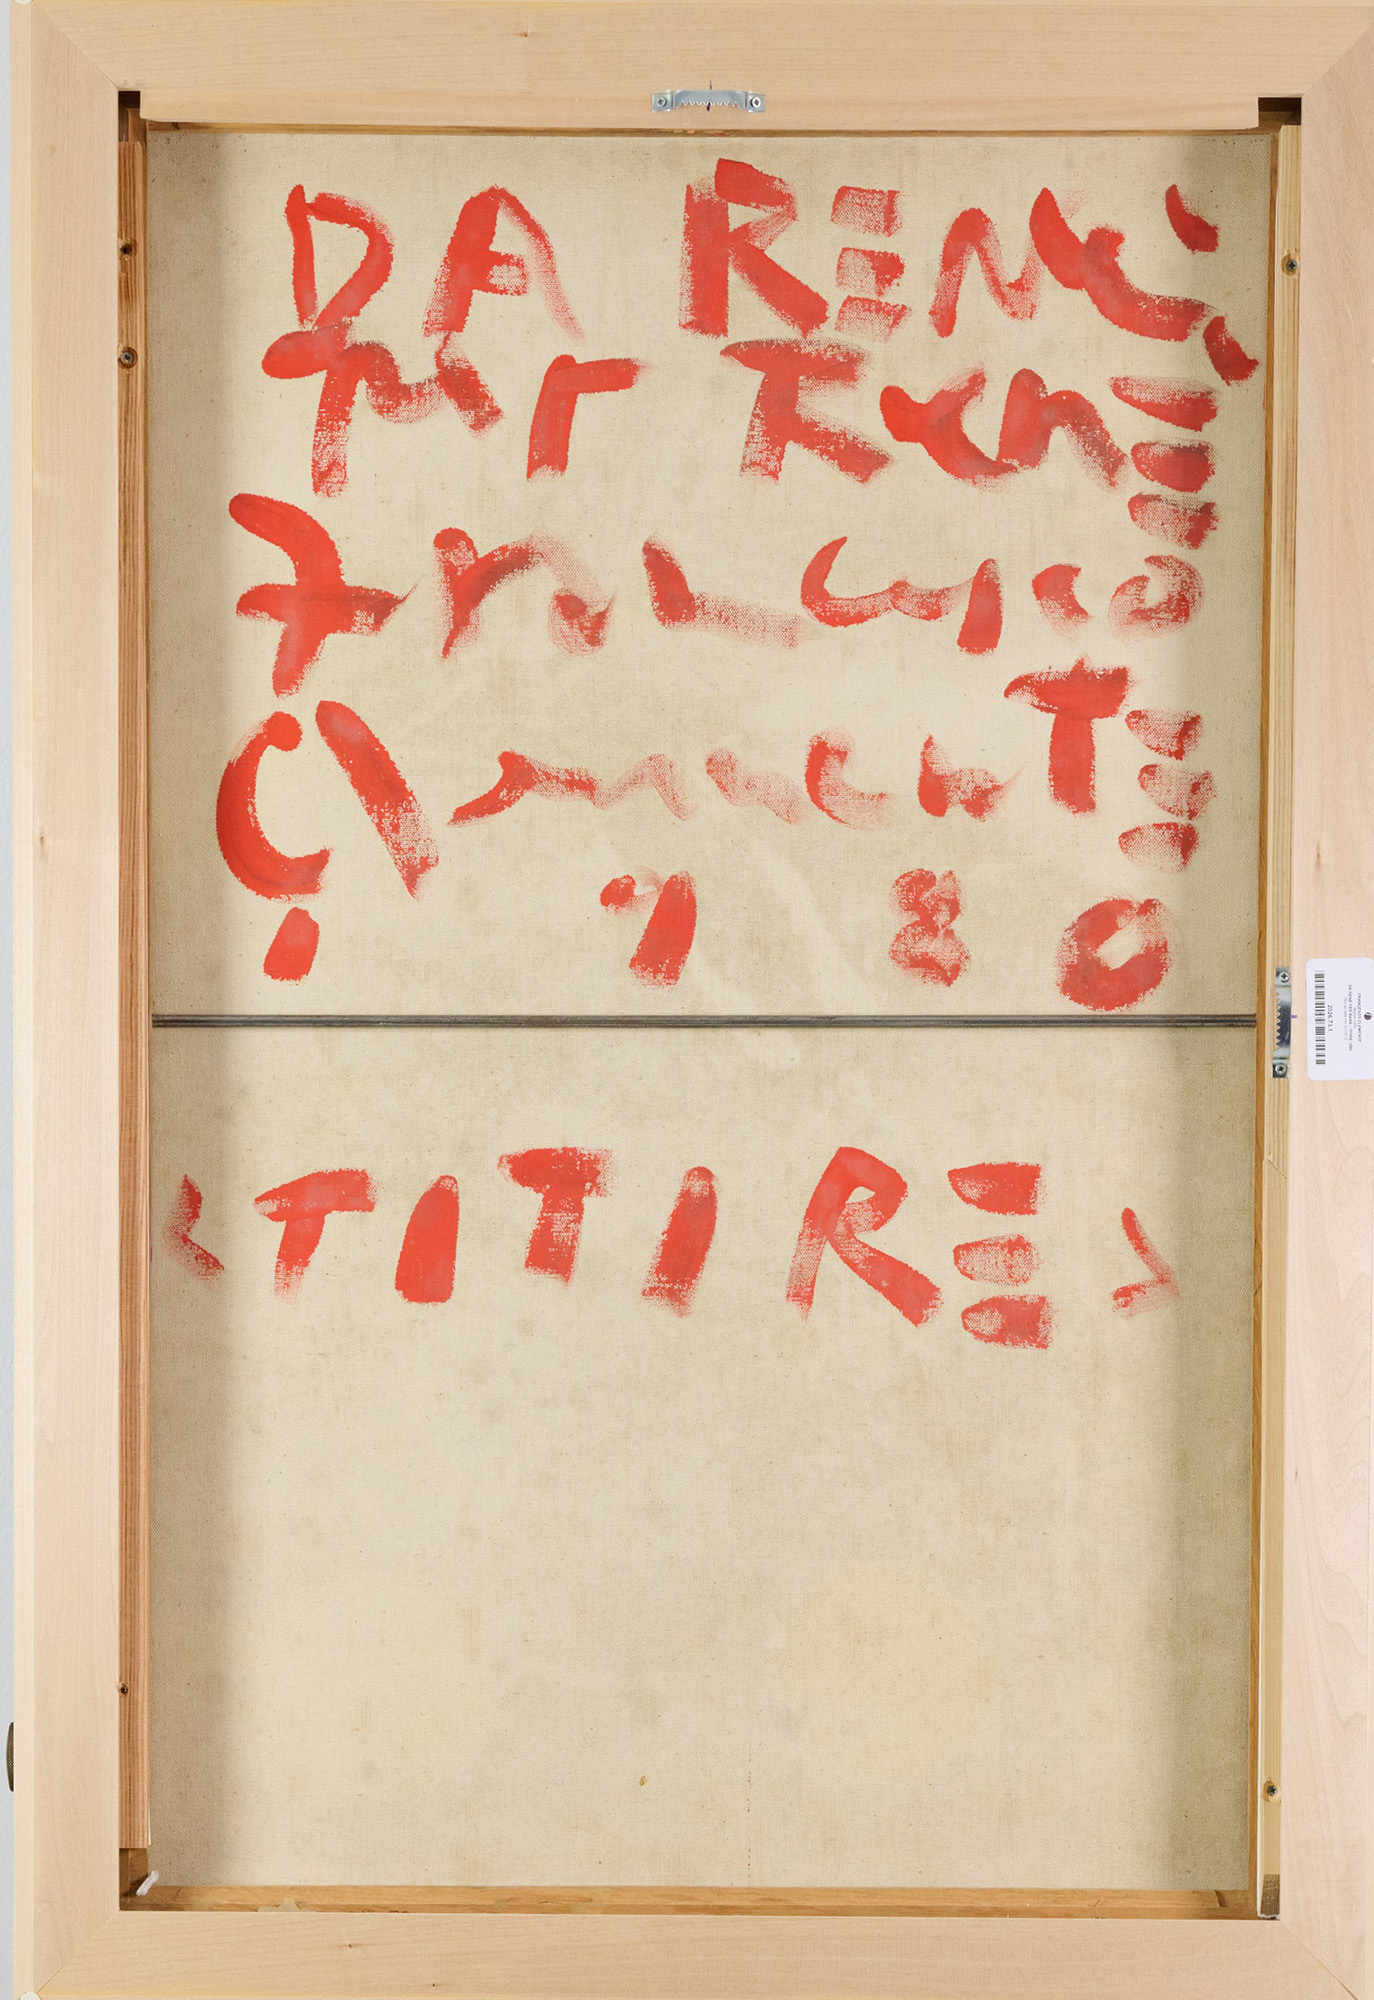 DA RENÉ
per RenE
Francesco
ClemenTE
1980
< TITIRE >
FRANCESCO CLEMENTE
2026.73.1